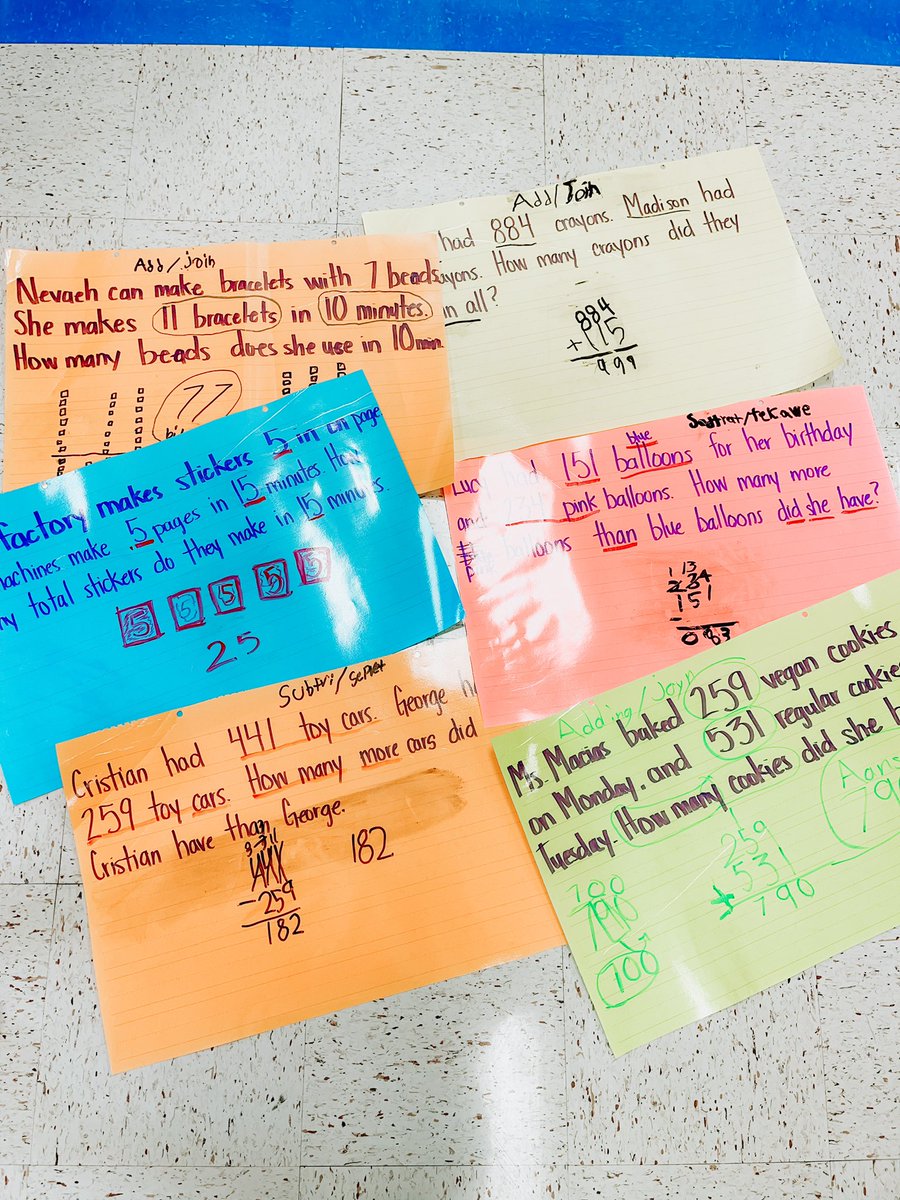 Add/Join
had 884 crayons. Madison had
crayons. How many crayons did they
in all?
884
+ 115
999
Add/join
Nevaeh can make bracelets with 7 beads
She makes 11 bracelets in 10 minutes.
How many beads does she use in 10 min.
77
factory makes stickers 5 in on page
machines make 5 pages in 15 minutes. How
total stickers do they make in 15 minutes.
5 5 5 5 5
25
blue
151 balloons for her birthday
and 234 pink balloons. How many more
balloons than blue balloons did she have?
1 13
234
151
-
083
Subtri/sepret
Cristian had 441 toy cars. George
259 toy cars. How many more cars did
Cristian have than George.
- 259
182
182
Adding/Joyn
Ms. Macias baked 259 vegan cookies
on Monday, and 531 regular cookies
Tuesday. How many cookies did she
1
259
+ 531
790
700
790
700